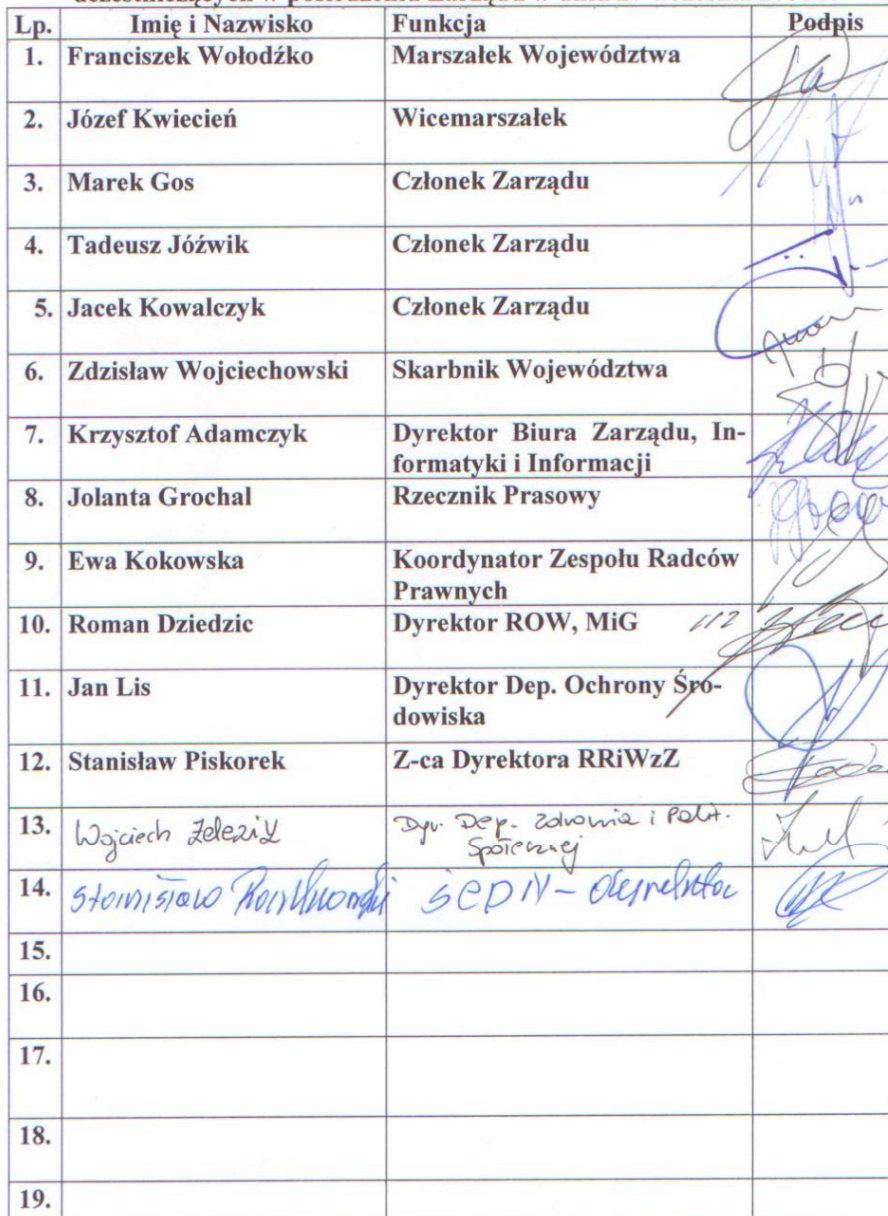 uczestniczących w posiedzeniu Zarządu w dniu
Lp. Imię i Nazwisko Funkcja Podpis
1. Franciszek Wołodźko Marszałek Województwa
2. Józef Kwiecień Wicemarszałek
3. Marek Gos Członek Zarządu
4. Tadeusz Jóźwik Członek Zarządu
5. Jacek Kowalczyk Członek Zarządu
6. Zdzisław Wojciechowski Skarbnik Województwa
7. Krzysztof Adamczyk Dyrektor Biura Zarządu, In-
formatyki i Informacji
8. Jolanta Grochal Rzecznik Prasowy
9. Ewa Kokowska Koordynator Zespołu Radców
Prawnych
10. Roman Dziedzic Dyrektor ROW, MiG
11. Jan Lis Dyrektor Dep. Ochrony Śro-
dowiska
12. Stanisław Piskorek Z-ca Dyrektora RRiWzZ
13. Wojciech Dyr. Dep. Zdrowia i Polit.
Społecznej
14. Stanisław
15.
16.
17.
18.
19.